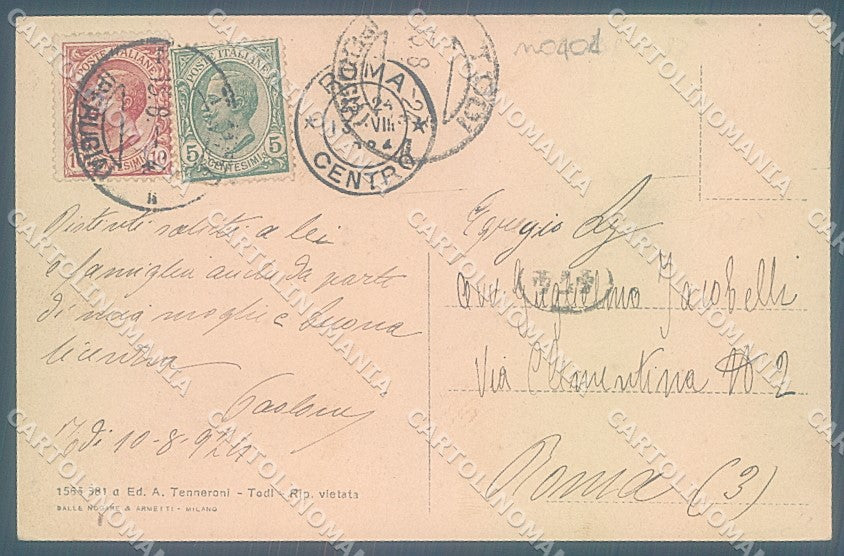 POSTE ITALIANE
10
CENTESIMI
POSTE ITALIANE
5 5
CENTESIMI
ROMA
CENTRO
24
VIII
TODI
(PERUGIA)
m0401
Distinti saluti a lei
e famiglia anche da parte
di mia moglie e buona
licenza
Todi 10-8-924
Egregio Sig
Cav. Guglielmo Jacobelli
Via Clementina N 2
Roma (3)
1565 581 a Ed. A. Tenneroni - Todi - Rip. vietata
DALLE NOGARE & ARMETTI - MILANO
CARTOLINOMANIA